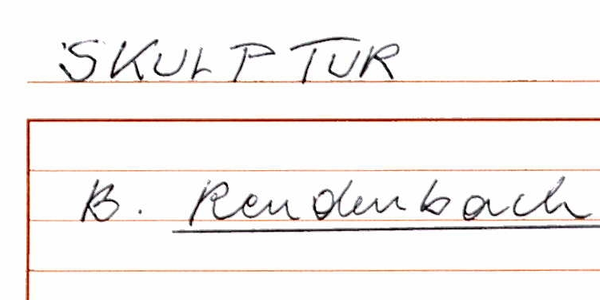 SKULPTUR
B. Rendenbach